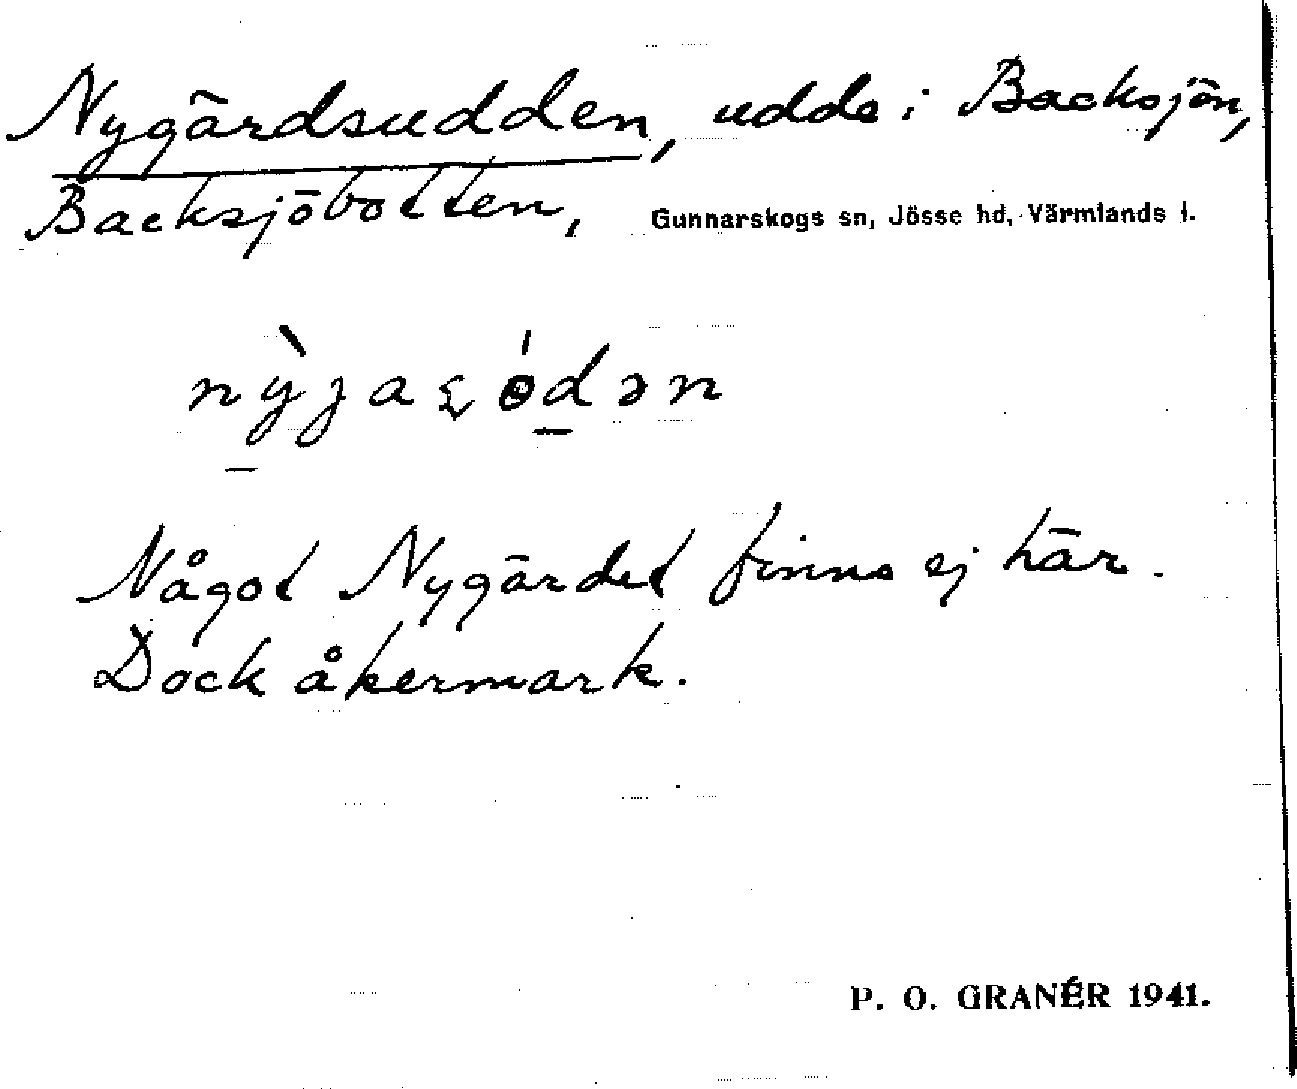 Nygärdsudden, udde i Backsjön,
Backsjöbotten, Gunnarskogs sn, Jösse hd, Värmlands l.
Något Nygärdet finns ej här.
Dock åkermark.
P. O. GRANÉR 1941.